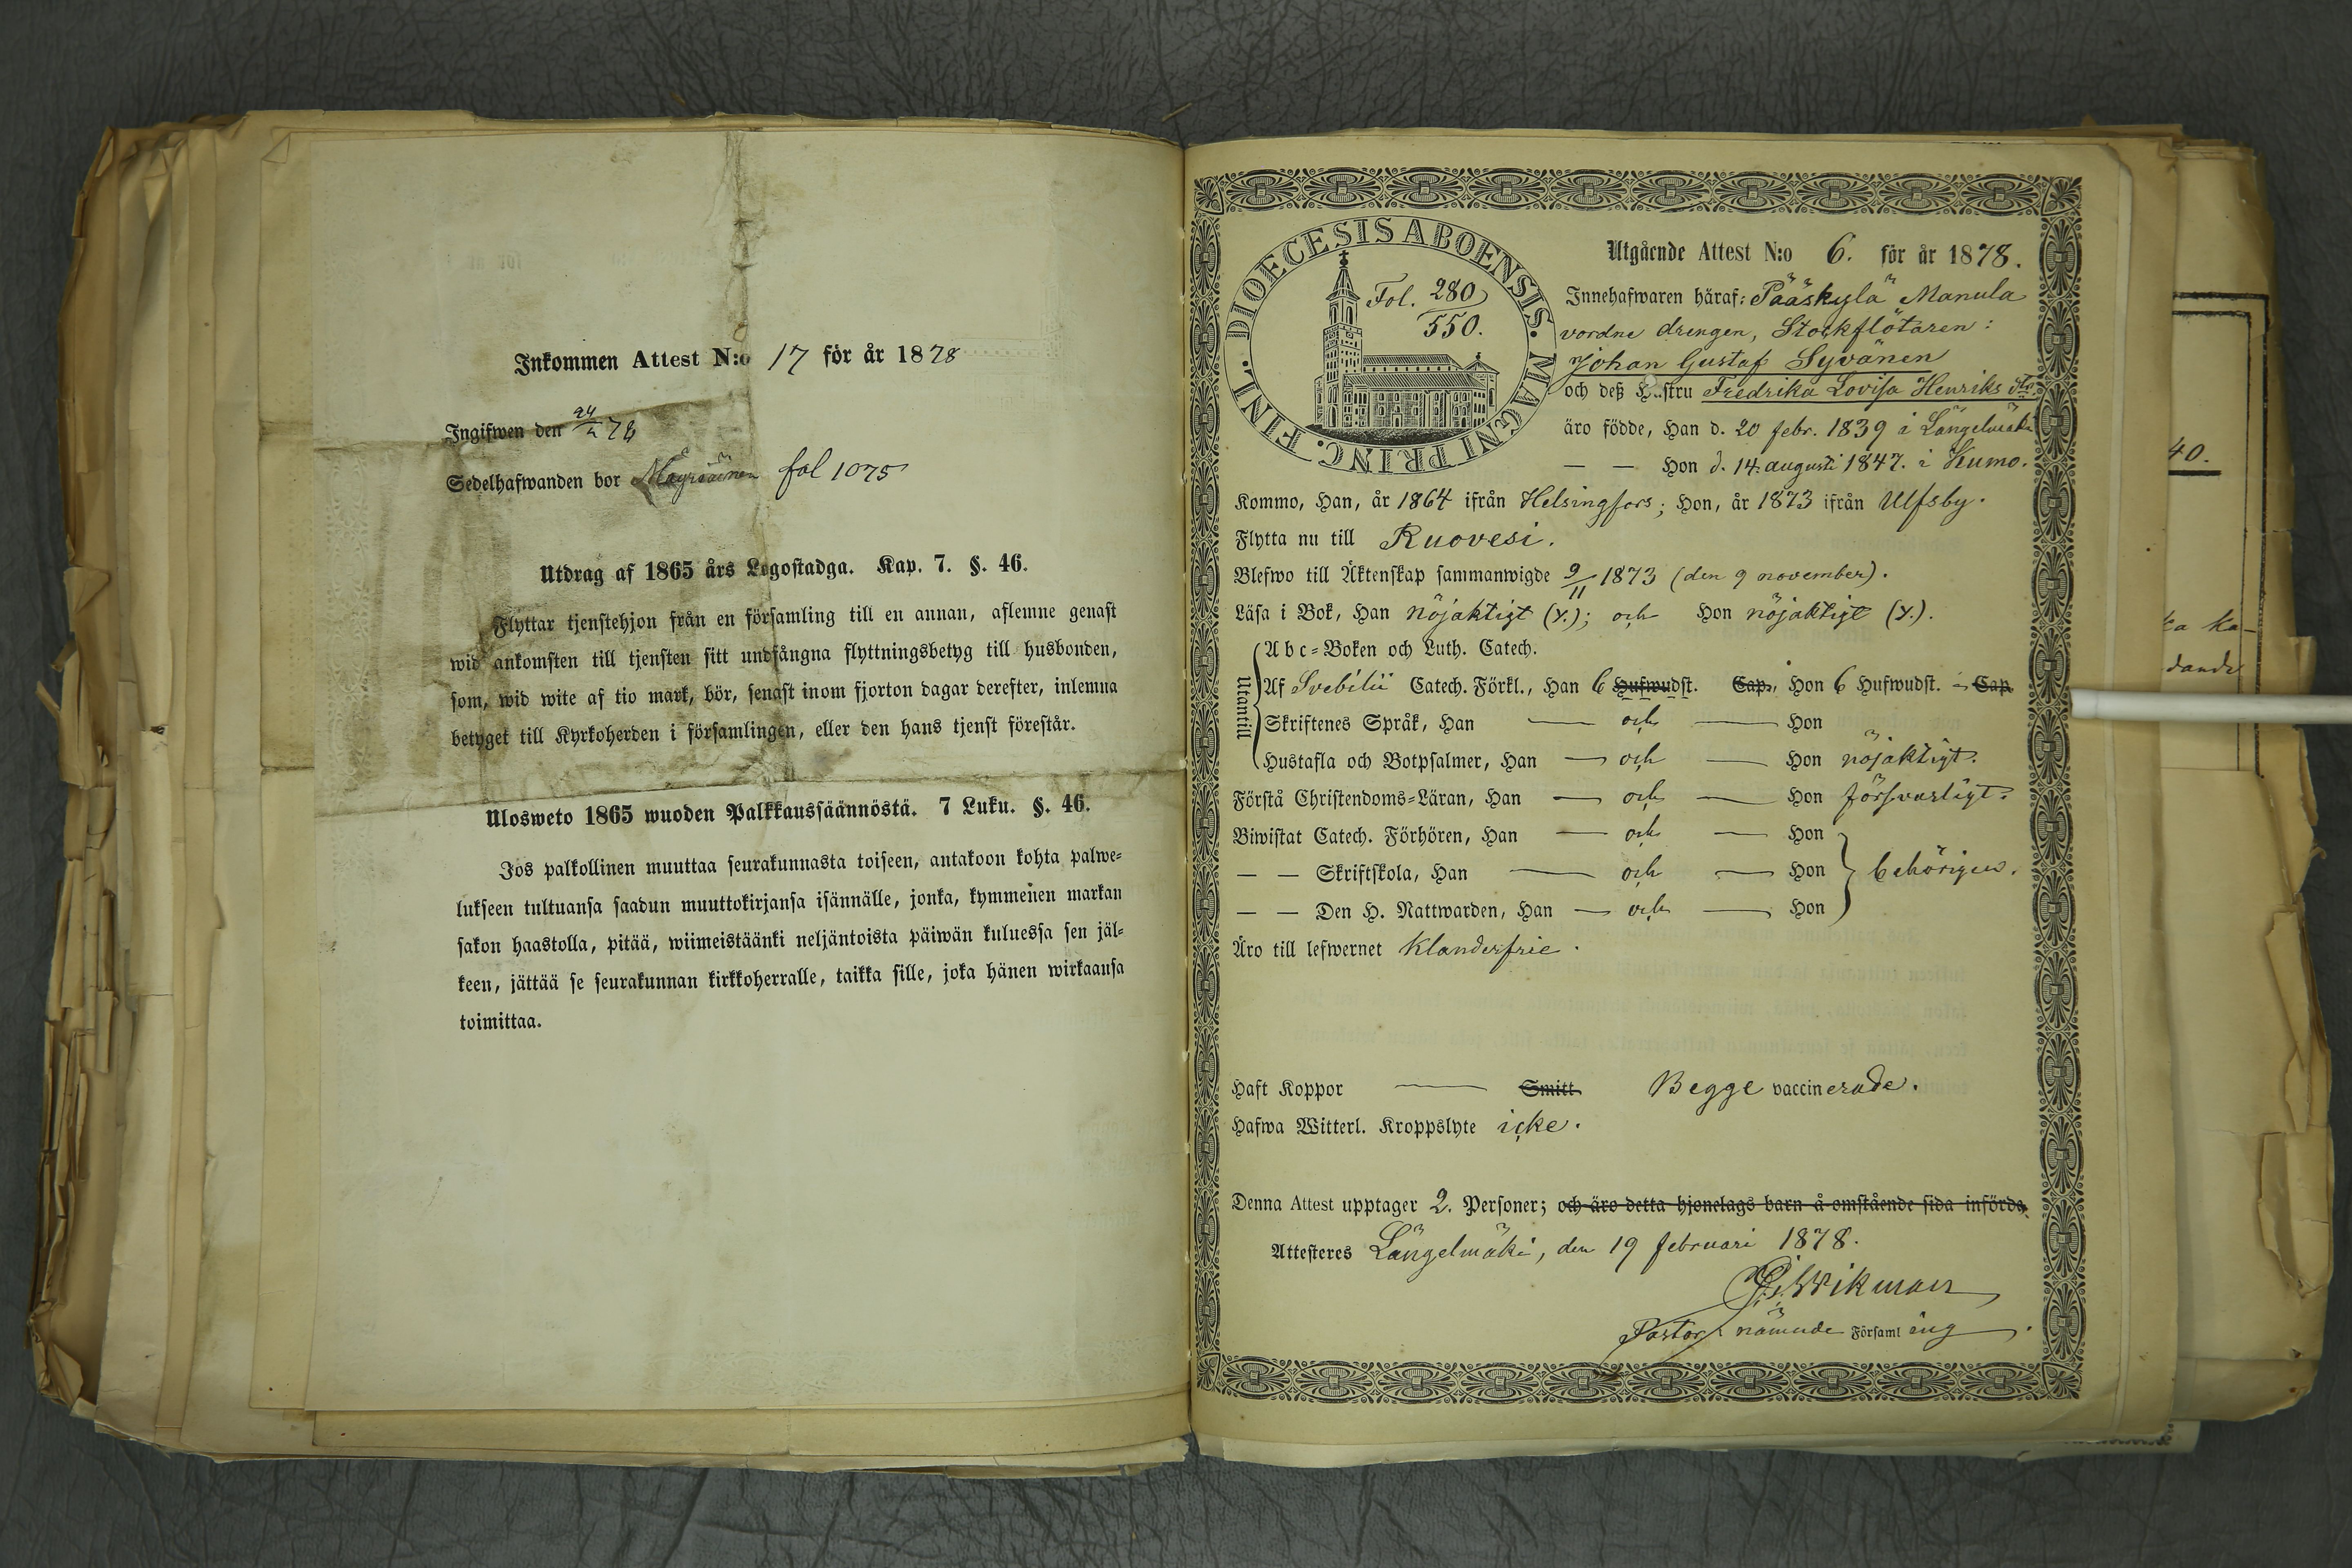 Inkommen Attest N:o 17 för år 1878
Ingifwen den 24/2 78
Sedelhafwanden bor fol 1075
Utdrag af 1865 års Legostadga. Kap. 7. §. 46.
Flyttar tjenstehjon från en församling till en annan, aflemne genast
wid ankomsten till tjensten sitt undfångna flyttningsbetyg till husbonden,
som, wid wite af tio mark, bör, senast inom fjorton dagar derefter, inlemna
betyget till Kyrkoherden i församlingen, eller den hans tjenst förestår.
Ulosweto 1865 wuoden Palkkaussäännöstä. 7 Luku. §. 46.
Jos palkollinen muuttaa seurakunnasta toiseen, antakoon kohta palwe-
lukseen tultuansa saadun muuttokirjansa isännälle, jonka, kymmenen markan
sakon haastolla, pitää, wiimeistäänki neljäntoista päiwän kuluessa sen jäl-
keen, jättää se seurakunnan kirkkoherralle, taikka sille, joka hänen wirkaansa
toimittaa.
DIOECESIS ABOENSIS. MAGNI PRINC. FINL.
Fol. 280
550.
Utgående Attest N:o 6. för år 1878.
Innehafwaren häraf: Pääskylä Manula
vordne drengen, Stockflötaren:
Johan Gustaf Syvänen
och deß Hustru Fredrika Lovisa Henriks dtr.
äro födde, Han d. 20 febr. 1839 i Längelmäki
— — Hon d. 14. augusti 1847. i Kumo.
Kommo, Han, år 1864 ifrån Helsingfors; Hon, år 1873 ifrån Ulfsby.
Flytta nu till Ruovesi.
Blefwo till Äktenskap sammanwigde 9/11 1873 (den 9 november).
Läsa i Bok, Han nöjaktigt (x.); och Hon nöjaktigt (x.).
Utantill
Abc-Boken och Luth. Catech.
Af Svebilii Catech. Förkl., Han 6 Hufwudst. Cap., Hon 6 Hufwudst. - Cap.
Skriftenes Språk, Han — och — Hon
Hustafla och Botpsalmer, Han — och — Hon nöjaktigt.
Förstå Christendoms-Läran, Han — och — Hon försvarligt.
Biwistat Catech. Förhören, Han — och — Hon
— — Skriftskola, Han — och — Hon behörigen.
— — Den H. Nattwarden, Han — och — Hon
Äro till lefwernet klanderfrie.
Haft Koppor — Smitt Begge vaccinerade.
Hafwa Witterl. Kroppslyte icke.
Denna Attest upptager 2. Personer; och äro detta hjonelags barn å omstående sida införda.
Attesteres Längelmäki, den 19 februari 1878.
Wikman
Pastor i nämnde Församling.
40.
ka ka-
dande